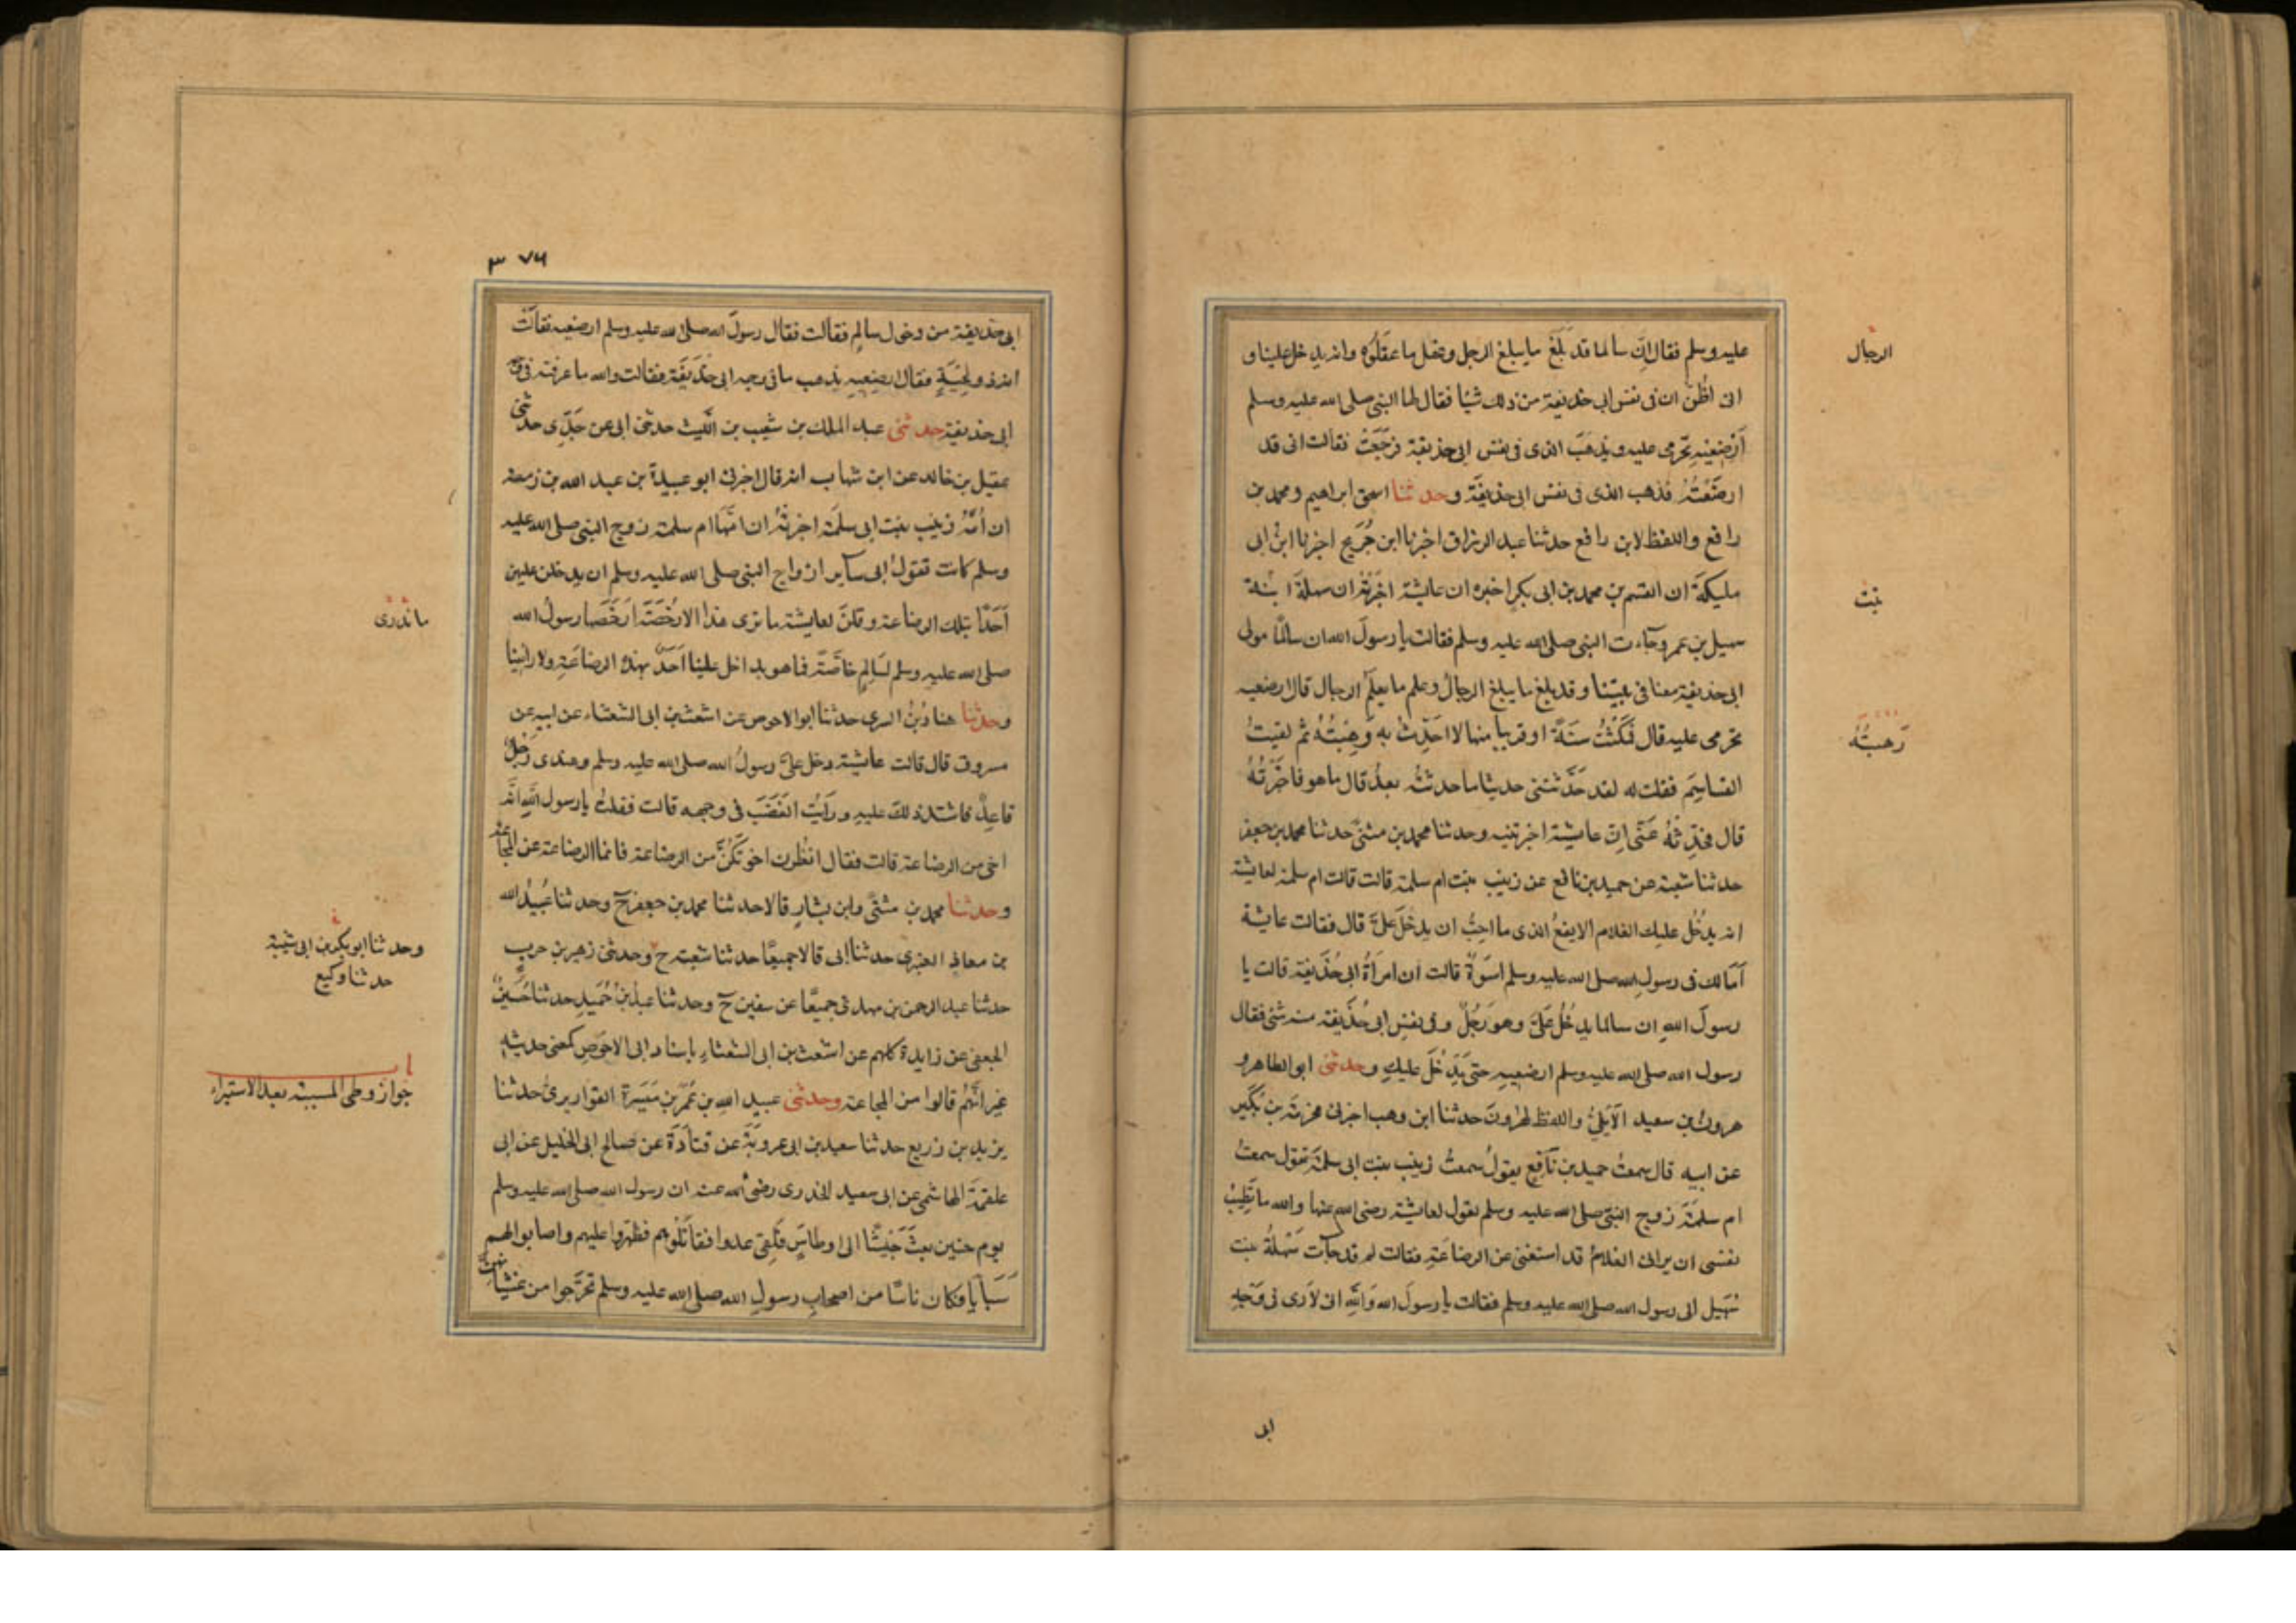 عليه وسلم فقال ان سالما قد بلغ ما يبلغ الرجل وعقل ما عقلوه وانه يدخل علينا و
الرجال
انى اظن ان فى نفس ابى حذيفة من ذلك شيا فقال لها النبى صلى الله عليه وسلم
أرضعيه تحرمى عليه ويذهب الذى فى نفس ابى حذيفة فرجعت فقالت انى قد
ارضعته فذهب الذى فى نفس ابى حذيفة وحدثنا اسحق ابراهيم ومحمد بن
رافع واللفظ لابن رافع حدثنا عبد الرزاق اخبرنا ابن جريج اخبرنا ابن ابى
مليكة ان القسم بن محمد بن ابى بكر اخبره ان عايشة اخبرته ان سهلة ابنة
بنت
سهيل بن عمرو جاءت النبى صلى الله عليه وسلم فقالت يا رسول الله ان سالمًا مولى
ابى حذيفة معنا فى بيتنا وقد بلغ ما يبلغ الرجال وعلم ما يعلم الرجال قال ارضعيه
تحرمى عليه قال فمكثت سنة او قريبا منها لا احدث به وهبته ثم لقيت
رهبته
القاسم فقلت له لقد حدثتنى حديثا ما حدثته بعد قال ما هو فاخبرته
قال فحدثه عنى ان عايشة اخبرتنيه وحدثنا محمد بن مثنى حدثنا محمد بن جعفر
حدثنا شعبة عن حميد بن نافع عن زينب بنت ام سلمة قالت قالت ام سلمة لعايشة
انه يدخل عليك الغلام الايفع الذى ما احب ان يدخل على قال فقالت عايشة
أما لك فى رسول الله صلى الله عليه وسلم اسوة قالت ان امرأة ابى حذيفة قالت يا
رسول الله ان سالما يدخل على وهو رجل وفى نفس ابى حذيفة منه شئ فقال
رسول الله صلى الله عليه وسلم ارضعيه حتى يدخل عليك وحدثنى ابو الطاهر و
هرون بن سعيد الايلى واللفظ لهرون حدثنا ابن وهب اخبرنى مخرمة بن بكير
عن ابيه قال سمعت حميد بن نافع يقول سمعت زينب بنت ابى سلمة تقول سمعت
ام سلمة زوج النبى صلى الله عليه وسلم تقول لعايشة رضى الله عنها والله ما تطيب
نفسى ان يرانى الغلام قد استغنى عن الرضاعة فقالت لم قد جآت سهلة بنت
سهيل الى رسول الله صلى الله عليه وسلم فقالت يا رسول الله والله انى لارى فى وجه
ابى
٣٧٦
ابى حذيفة من دخول سالم فقالت فقال رسول الله صلى الله عليه وسلم ارضعيه فقالت
انه ذو لحية فقال ارضعيه يذهب ما فى وجه ابى حذيفة فقالت والله ما عرفته فى وجه
ابى حذيفة حدثنى عبد الملك بن شعيب بن الليث حدثنى ابى عن جدى حدثنى
عقيل بن خالد عن ابن شهاب انه قال اخبرنى ابو عبيدة بن عبد الله بن زمعة
ان أمه زينب بنت ابى سلمة اخبرته ان امها ام سلمة زوج النبى صلى الله عليه
وسلم كانت تقول ابى سآير ازواج النبى صلى الله عليه وسلم ان يدخلن عليهن
أحدًا بتلك الرضاعة وقلن لعايشة ما نرى هذا الا رخصة ارخصها رسول الله
ما ندرى
صلى الله عليه وسلم لسالم خاصة فما هو بداخل علينا احد بهذه الرضاعة ولا رائينا
وحدثنا هناد بن السرى حدثنا ابو الاحوص عن اشعث بن ابى الشعثاء عن ابيه عن
مسروق قال قالت عايشة دخل على رسول الله صلى الله عليه وسلم وعندى رجل
قاعد فاشتد ذلك عليه ورأيت الغضب فى وجهه قالت فقلت يا رسول الله انه
اخى من الرضاعة قالت فقال انظرن اخوتكن من الرضاعة فانما الرضاعة عن المجاعة
وحدثنا محمد بن مثنى وابن بشار قالا حدثنا محمد بن جعفر ح وحدثنا عبيد الله
بن معاذ العنبرى حدثنا ابى قالا جميعًا حدثنا شعبة ح وحدثنى زهير بن حرب
وحدثنا ابو بكر بن ابى شيبة
حدثنا وكيع
حدثنا عبد الرحمن بن مهدى جميعًا عن سفين ح وحدثنا عبد بن حميد حدثنا حسين
الجعفى عن زايدة كلهم عن اشعث بن ابى الشعثاء باسناد ابى الاحوص كمعنى حديثه
غير انهم قالوا من المجاعة وحدثنى عبيد الله بن عمر بن ميسرة القواريرى حدثنا
باب
جواز وطى المسبية بعد الاستبراء
يزيد بن زريع حدثنا سعيد بن ابى عروبة عن قتادة عن صالح ابى الخليل عن ابى
علقمة الهاشمى عن ابى سعيد الخدرى رضى الله عنه ان رسول الله صلى الله عليه وسلم
يوم حنين بعث جيشًا الى اوطاس فلقى عدوا فقاتلوهم فظهروا عليهم واصابوا لهم
سبايا فكان ناسًا من اصحاب رسول الله صلى الله عليه وسلم تحرجوا من غشيانهن